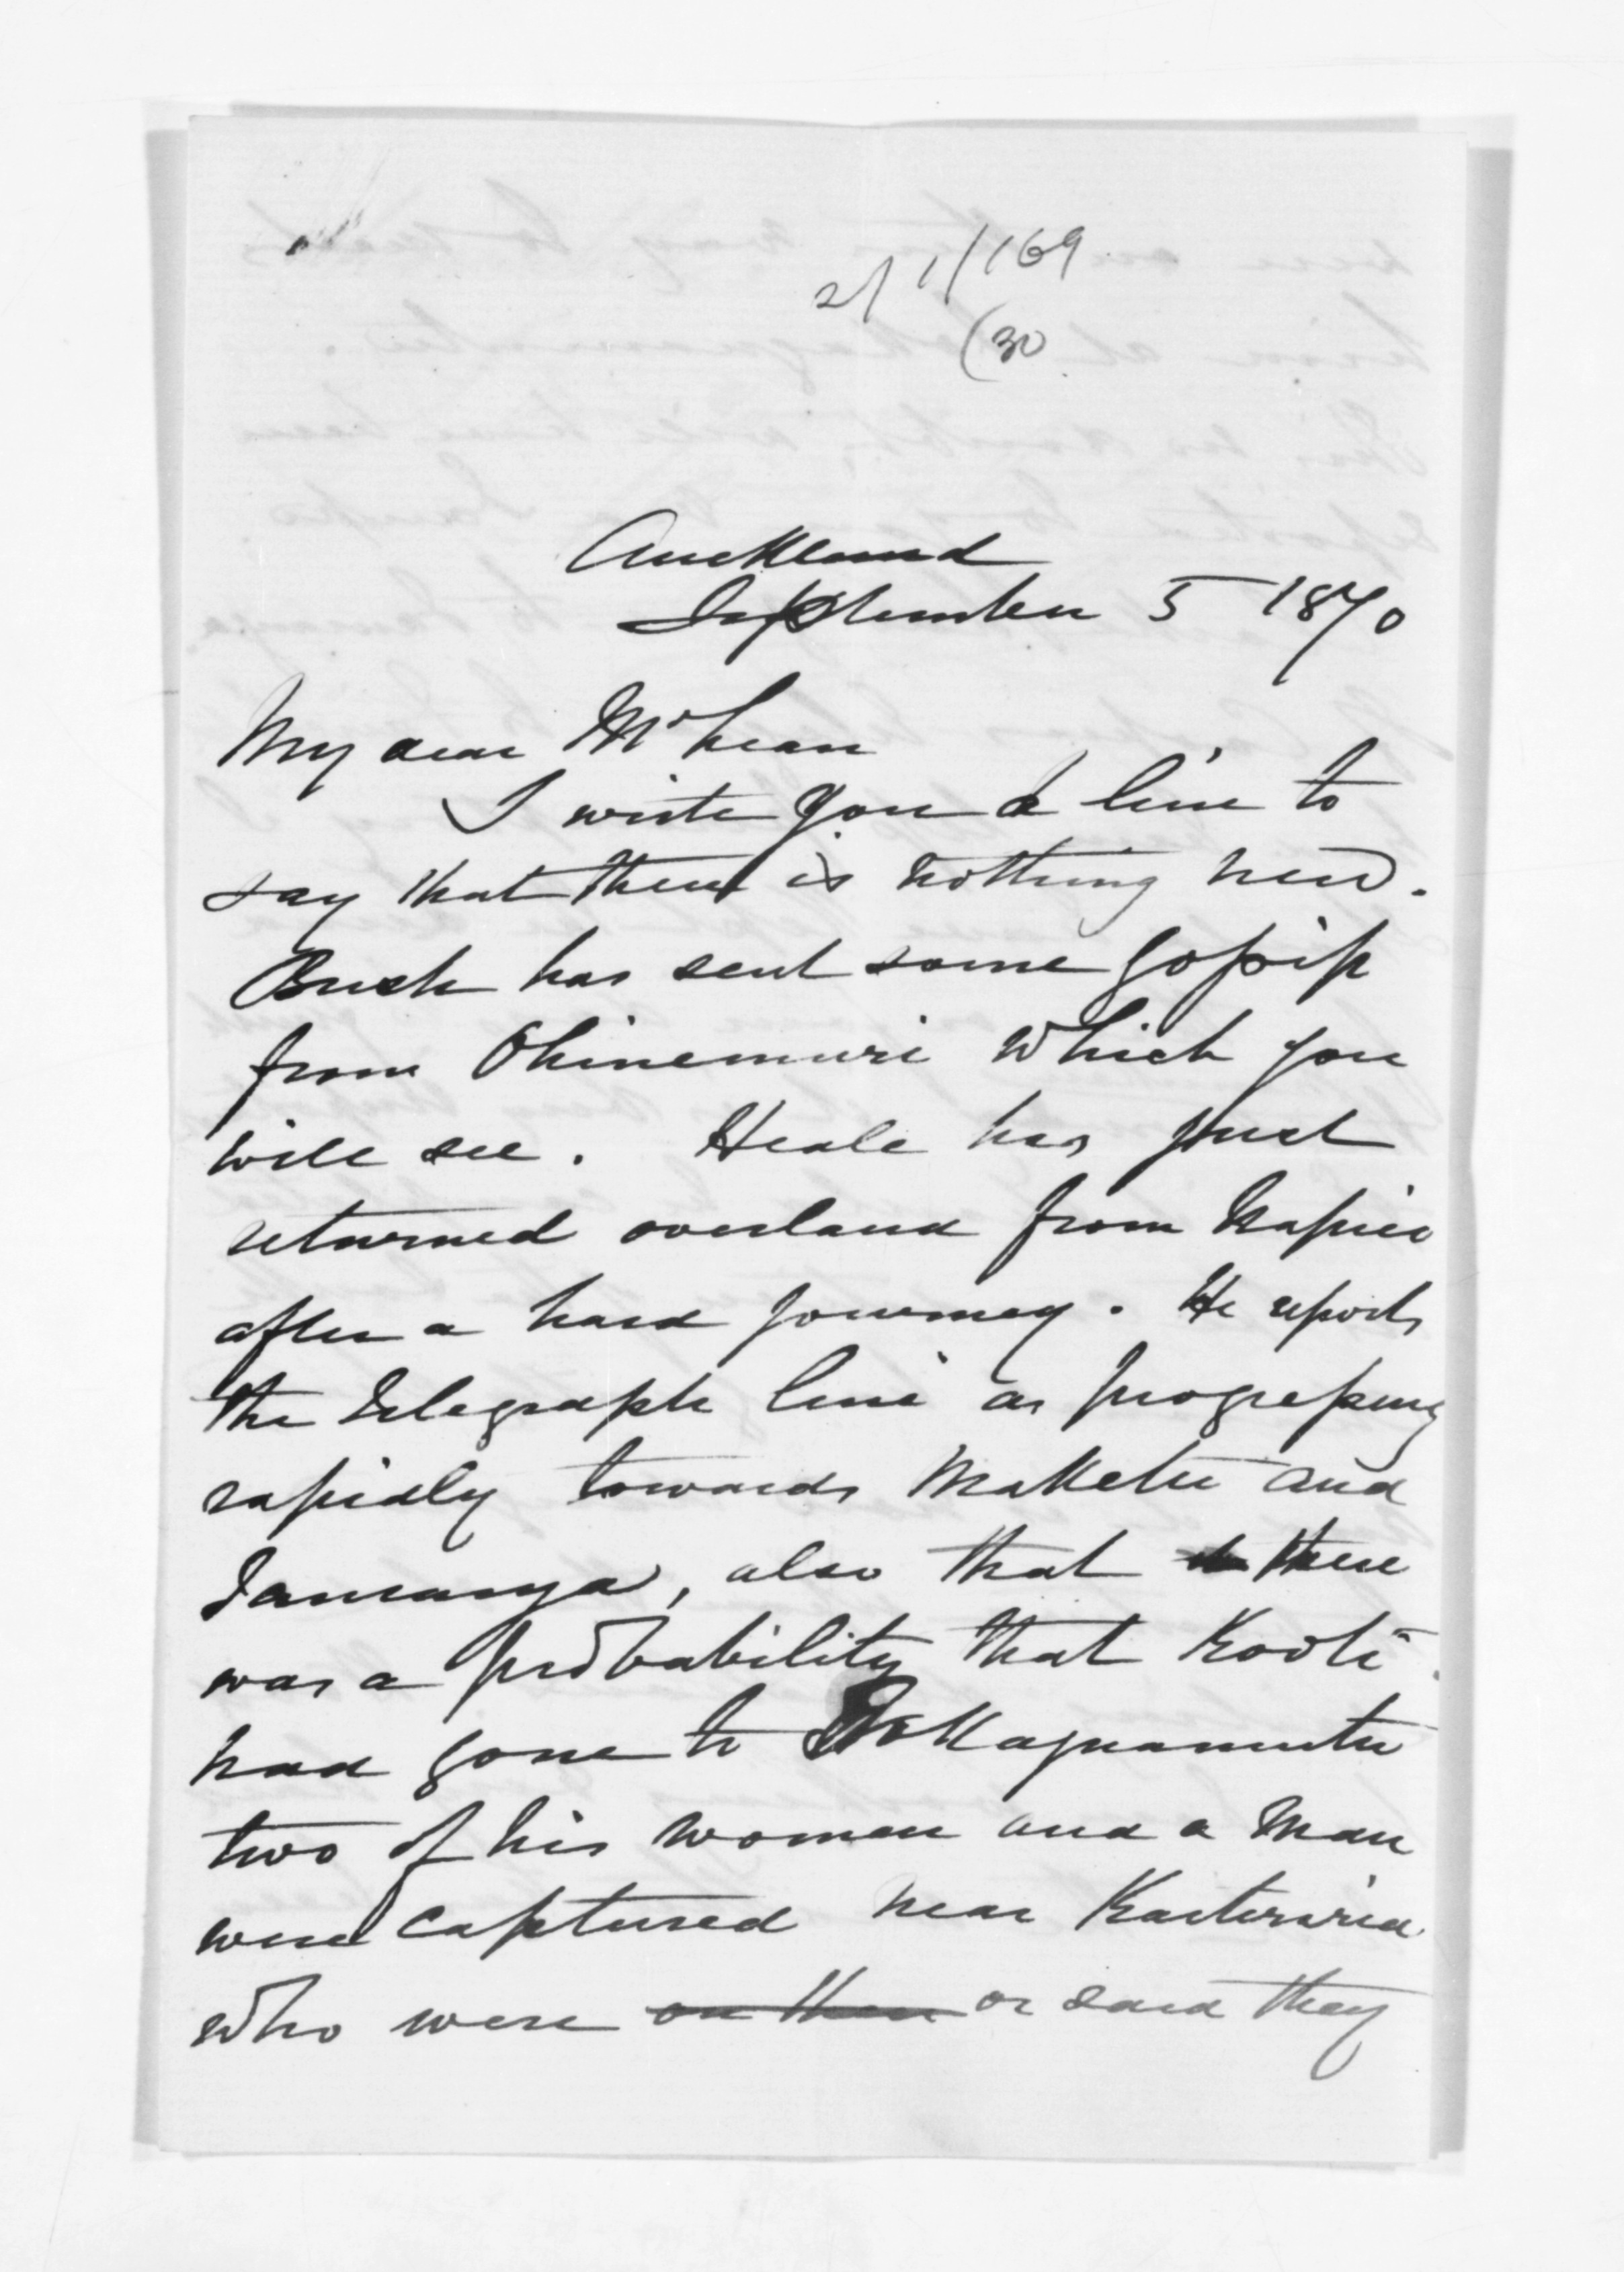 2/1/169
(30
Auckland
September 5 1870
My dear McLean
I write you a line to
say that there is nothing new.
Bush has sent some gossip
from Ohinemuri which you
will see. Heale has just
returned overland from Napier
after a hard journey. He reports
the Telegraph line as progressing
rapidly towards Maketu and
Tauranga, also that there
was a probability that Kooti
had gone to
two of his women and a man
were captured near Kaiteriria
who were on their or said they